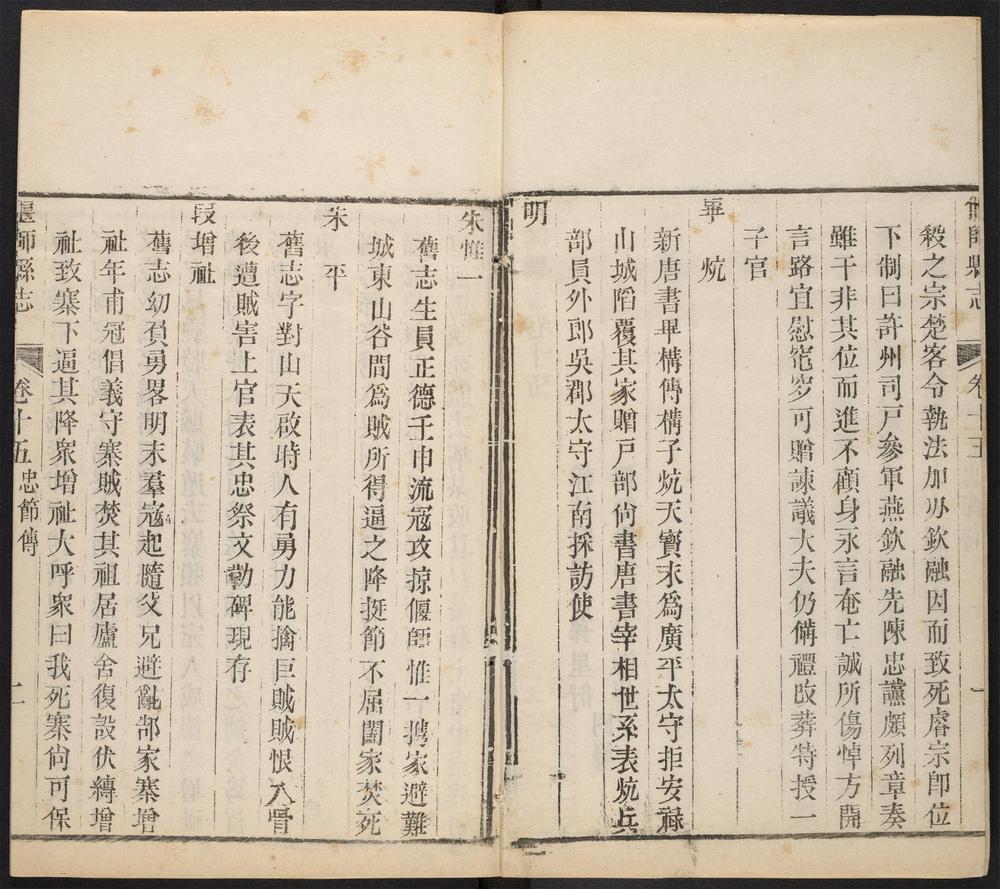 殺之宗楚客令執法加刃欽融因而致死睿宗卽位
下制曰許州司戸參軍燕欽融先陳忠讜頗列章奏
雖干非其位而進不顧身永言奄亡誠所傷悼方開
言路宜慰窀穸可贈諫議大夫仍備禮改葬特授一
子官
畢炕
新唐書畢構傳構子炕天寳末爲廣平太守拒安祿
山城陷覆其家贈戸部尙書唐書宰相世系表炕兵
部員外郎吳郡太守江南採訪使
明
朱惟一
舊志生員正德壬申流寇攻掠偃師惟一携家避難
城東山谷間爲賊所得逼之降挺節不屈闔家焚死
朱平
舊志字對山天啟時人有勇力能擒巨賊賊恨入骨
後遭賊害上官表其忠祭文勒碑現存
段增祉
舊志幼負勇畧明末羣寇起隨父兄避亂郜家寨增
祉年甫冠倡義守寨賊焚其祖居廬舍復設伏縛增
祉致寨下逼其降衆增祉大呼衆曰我死寨尙可保
偃師縣志
卷十五忠節傳
二